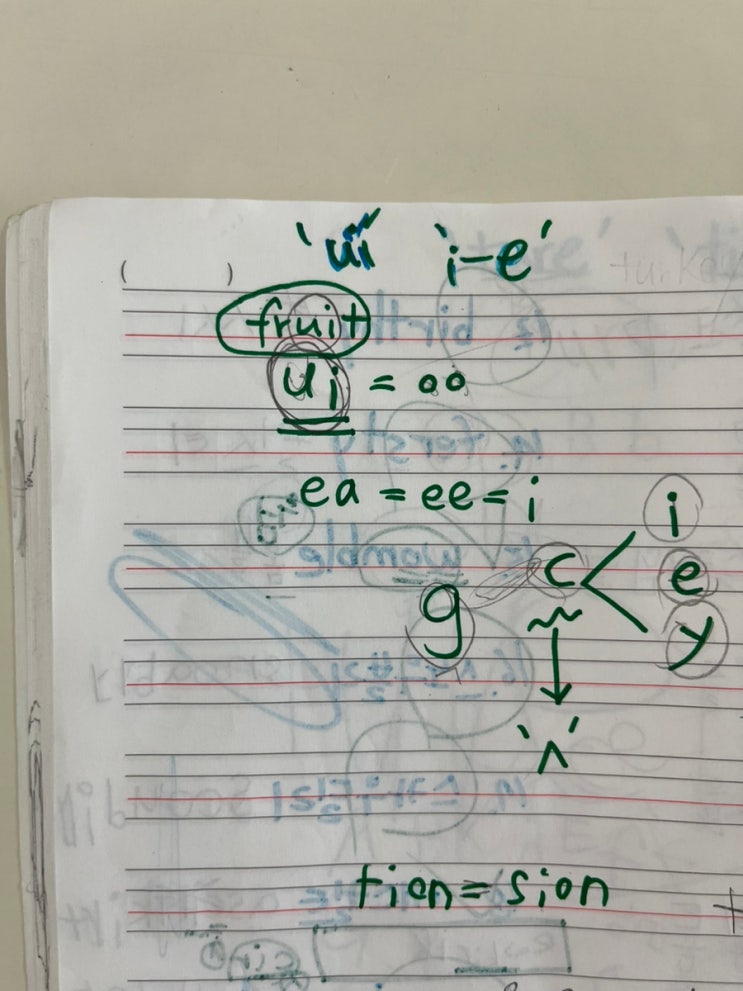 'ui' 'i-e'
( )
fruit
ui = oo
ea = ee = i
i
g c < e
y
'ㅅ'
tion = sion